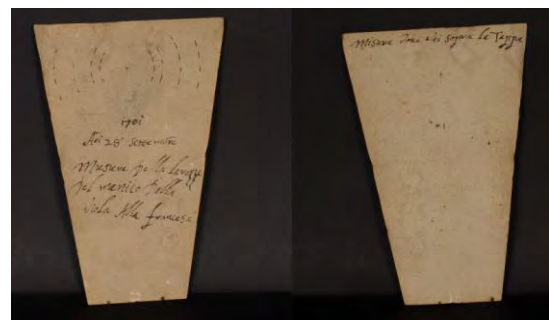 1701
Adi 28 Settembre
Misura per la largezza
del manico della
viola Alla francese
Misura ove sopra le Tappe